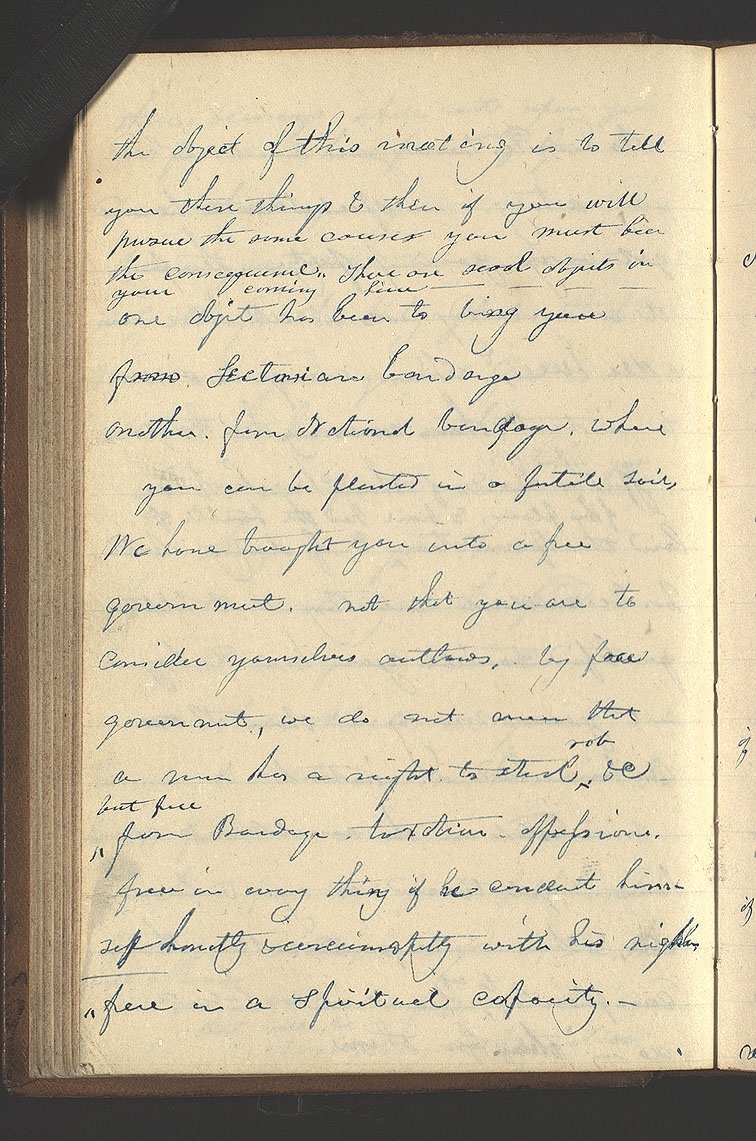 the object of this meeting is to tell
you these things & then if you will
pursue the same courses you must bear
the consequence. There are several objects in
your coming here
one objt has been to bring you
from Sectarian bondage
another. from National bondage. where
you can be planted in a fertile soil,
We have bought you into a free
government. not that you are to
consider yourselves outlaws, by free
governmnt, we do not mean that
a man has a right to steal rob &c
but free
from Bondage taxation oppression.
free in every thing if he conduct him
self honestly & circumspectly with his neighbor
free in a Spiritual capacity.—